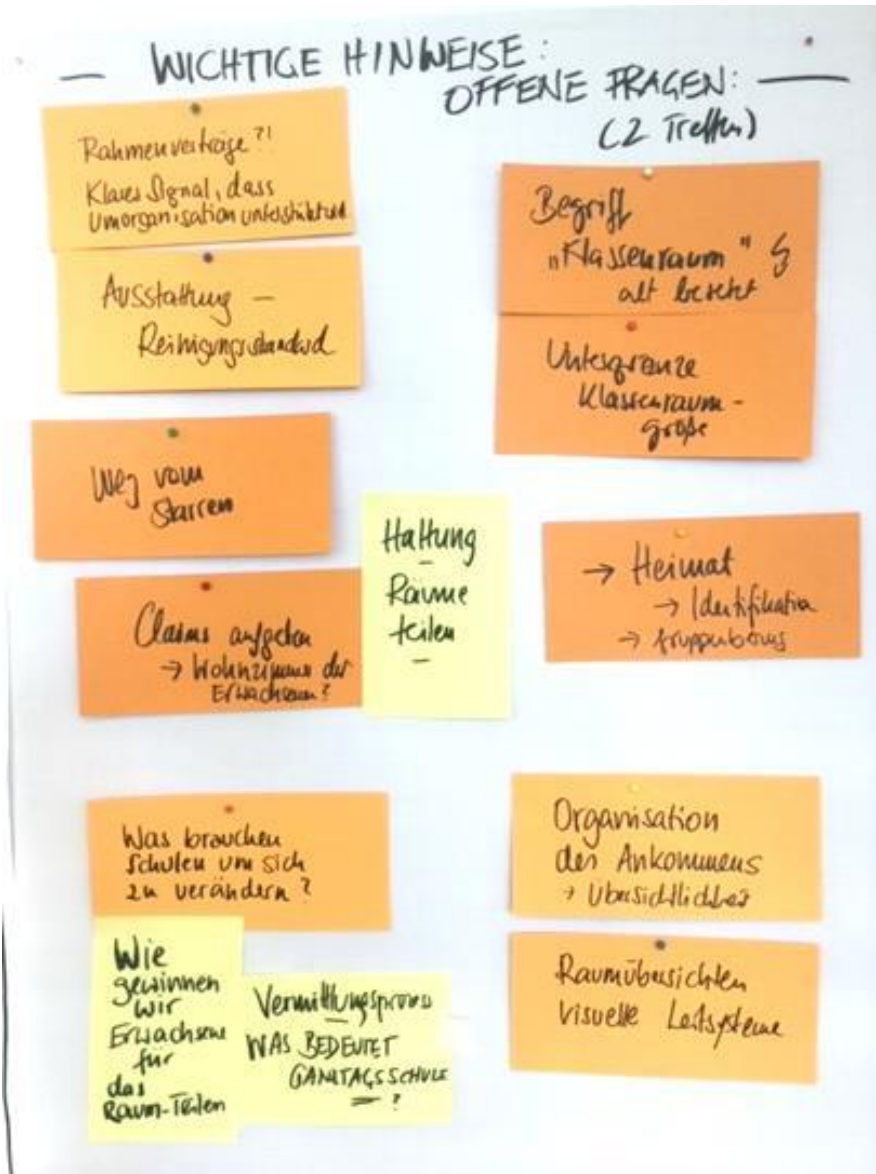 — WICHTIGE HINWEISE:
OFFENE FRAGEN: —
(2 Treffen)
Rahmenverträge?!
Klares Signal, dass
Umorganisation unterstützt wird
Ausstattung –
Reinigungsstandard
Weg vom
Starren
Claims aufgeben
→ Wohnzimmer der
Erwachsenen?
Haltung
–
Räume
teilen
–
Was brauchen
Schulen um sich
zu verändern?
Wie
gewinnen
wir
Erwachsene
für
das
Raum-Teilen
Vermittlungsprozess
WAS BEDEUTET
GANZTAGSSCHULE
?
Begriff
„Klassenraum"
alt besetzt
Untergrenze
Klassenraum-
größe
→ Heimat
→ Identifikation
→
Organisation
des Ankommens
→ Übersichtlichkeit
Raumübersichten
visuelle Leitsysteme